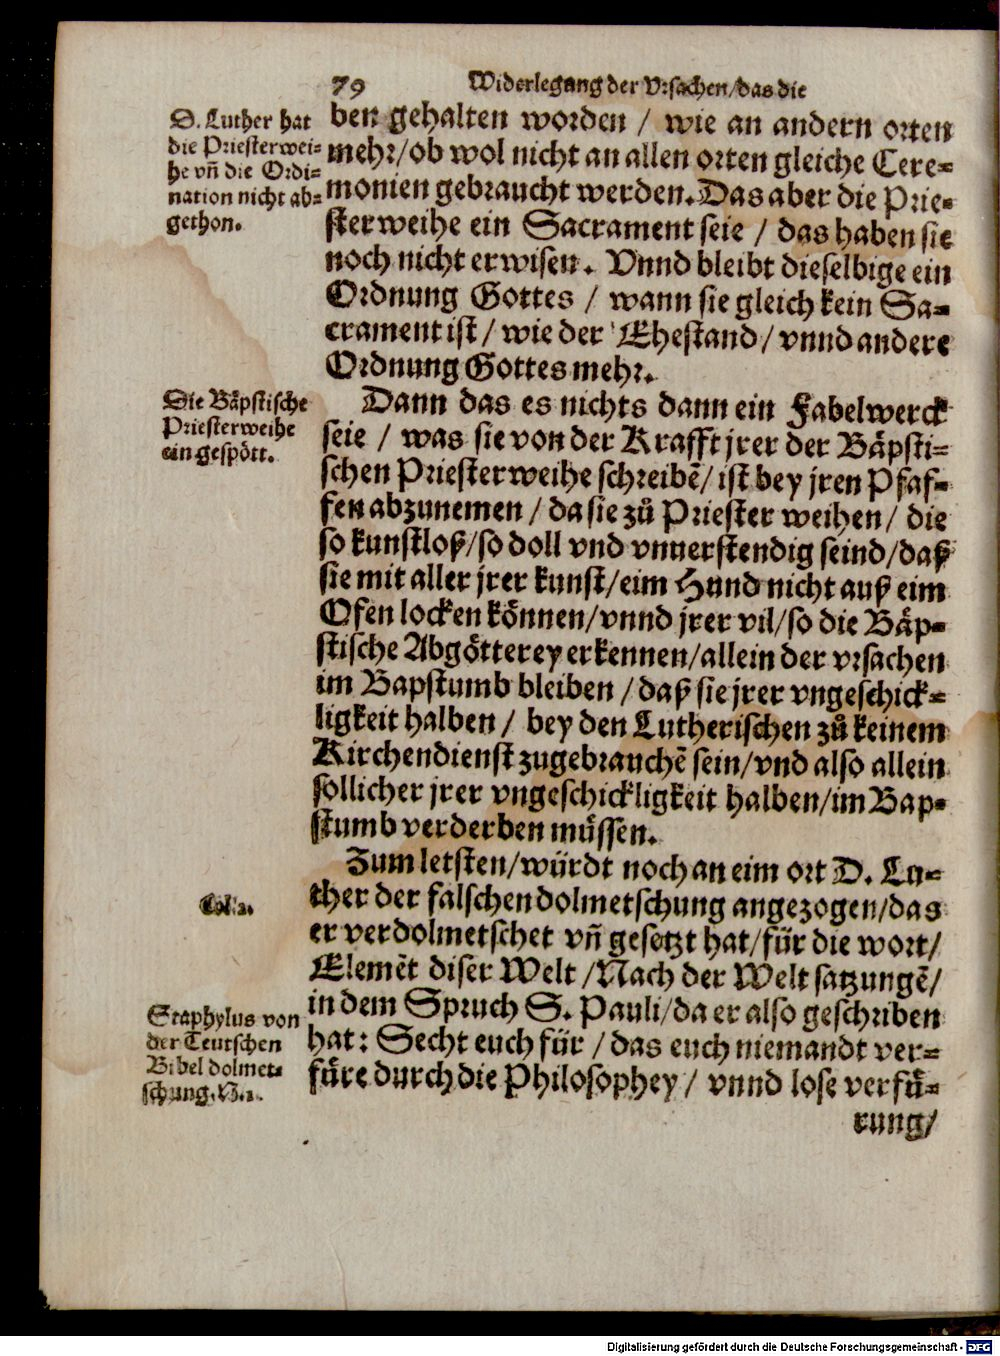 79 Widerlegung der Vrsachen/das die
D. Luther hat
die Priesterwei-
he vñ die Ordi-
nation nicht ab-
gethon.
ben gehalten worden / wie an andern orten
mehr/ob wol nicht an allen orten gleiche Cere-
monien gebraucht werden. Das aber die Prie-
sterweihe ein Sacrament seie / das haben sie
noch nicht erwisen. Vnnd bleibt dieselbige ein
Ordnung Gottes / wann sie gleich kein Sa-
crament ist / wie der Ehestand / vnnd andere
Ordnung Gottes mehr.
Die Bäpstische
Priesterweihe
ein gespött.
Dann das es nichts dann ein Fabelwerck
seie / was sie von der Krafft jrer der Bäpsti-
schen Priesterweihe schreibẽ/ ist bey jren Pfaf-
fen abzunemen / da sie zů Priester weihen / die
so kunstloß/so doll vnd vnuerstendig seind/daß
sie mit aller jrer kunst/eim Hund nicht auß eim
Ofen locken können/vnnd jrer vil/so die Bäp-
stische Abgötterey erkennen/allein der vrsachen
im Bapstumb bleiben / daß sie jrer vngeschick-
ligkeit halben / bey den Lutherischen zů keinem
Kirchendienst zugebrauchẽ sein/vnd also allein
sollicher jrer vngeschickligkeit halben/im Bap-
stumb verderben müssen.
Zum letsten/würdt noch an eim ort D. Lu-
ther der falschen dolmetschung angezogen/das
er verdolmetschet vñ gesetzt hat/für die wort/
Elemẽt diser Welt /Nach der Welt satzungẽ/
in dem Spruch S. Pauli/da er also geschriben
hat: Secht euch für / das euch niemandt ver-
füre durch die Philosophey / vnnd lose verfü-
Col. 2.
Staphylus von
der Teutschen
Bibel dolmet-
schung.
rung/
Digitalisierung gefördert durch die Deutsche Forschungsgemeinschaft - DFG